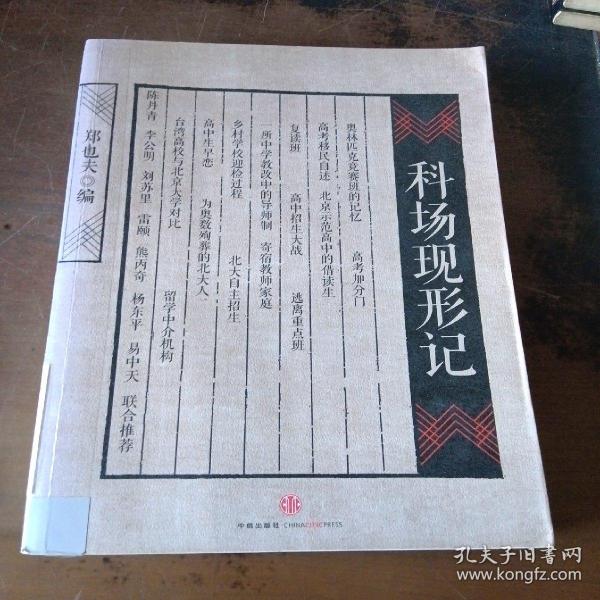 科场现形记
奥林匹克竞赛班的记忆 高考加分门
高考移民自述 北京示范高中的借读生
复读班 高中招生大战 逃离重点班
一所中学教改中的导师制 寄宿教师家庭
乡村学校迎检过程 北大自主招生
高中生早恋 为奥数殉葬的北大人
台湾高校与北京大学对比 留学中介机构
陈丹青 李公明 刘苏里 雷颐 熊丙奇 杨东平 易中天 联合推荐
郑也夫 编
中信出版社·CHINACITICPRESS
孔夫子旧书网
www.kongfz.com